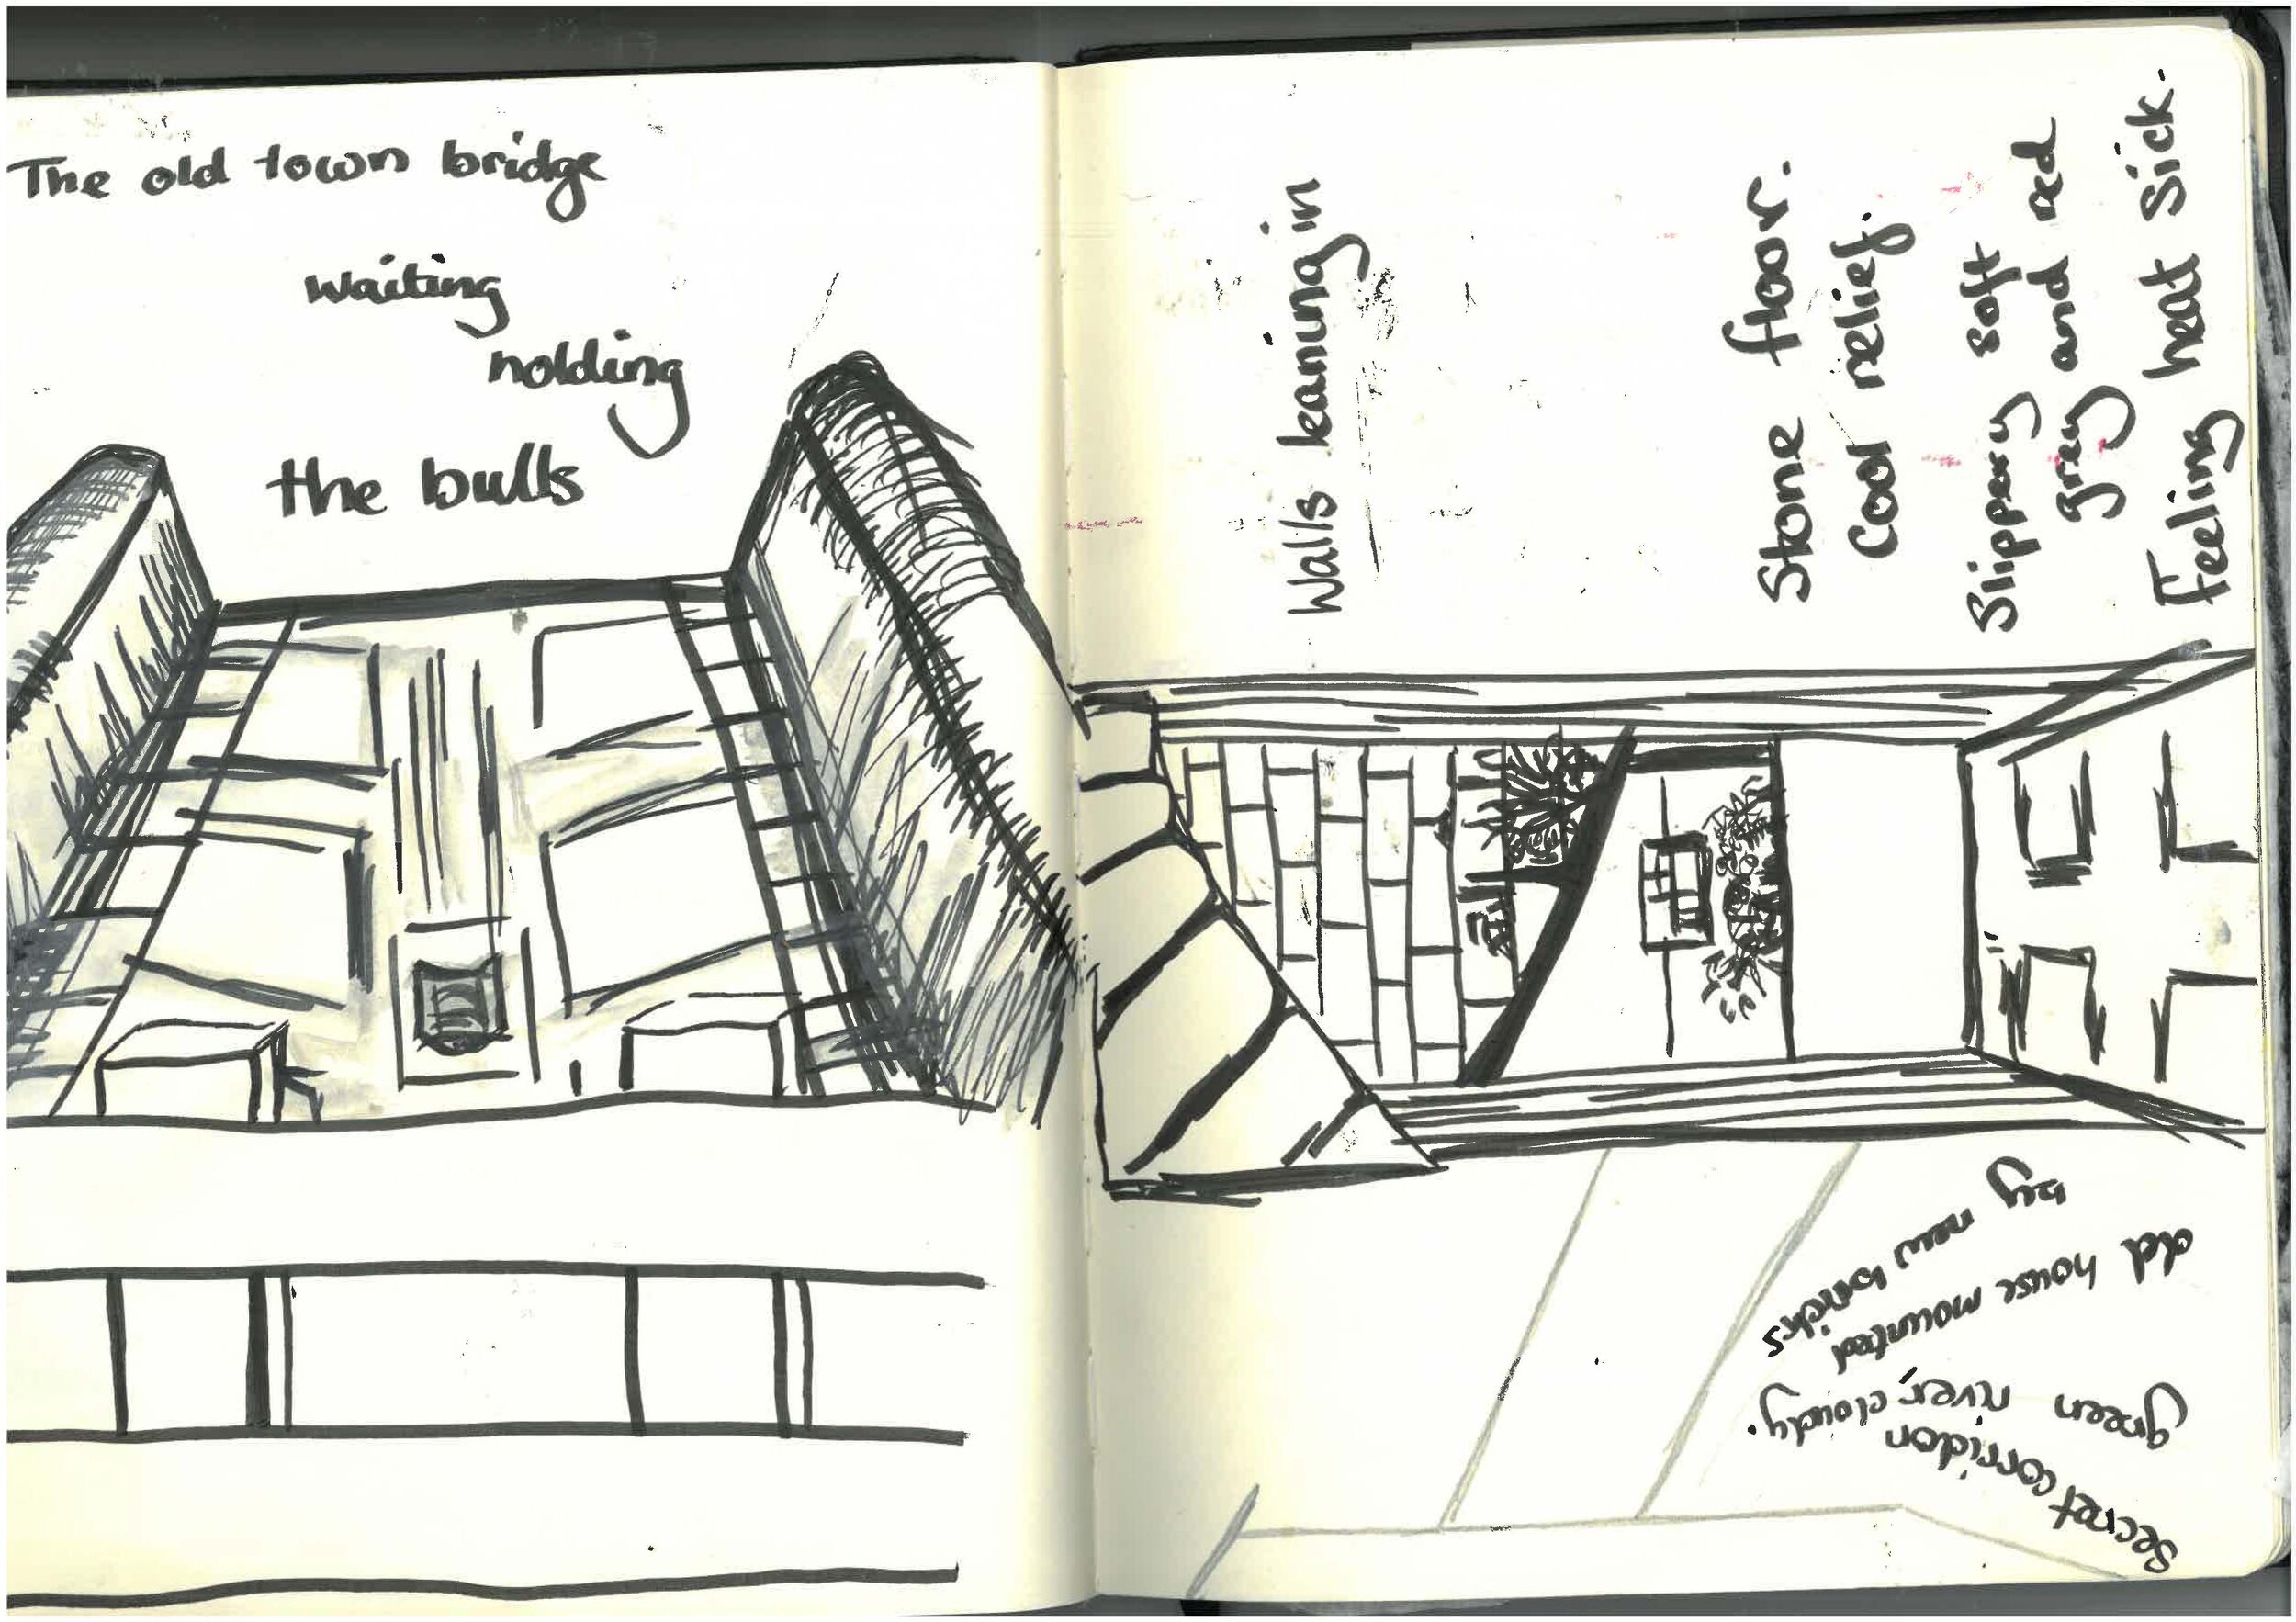 The old town bridge
waiting
holding
the bulls
Walls leaning in
Stone floor.
Cool relief.
Slippery soft
grey and red
Feeling heat sick.
Secret corridor
green river, cloudy.
old house mounted
by new bricks